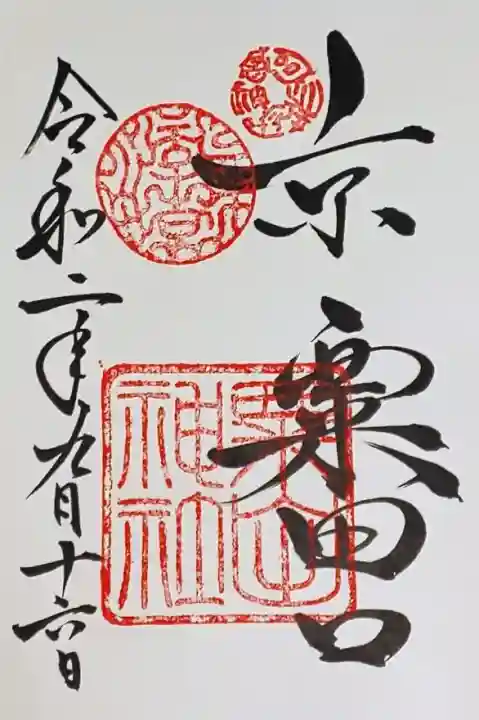 京
粟田口
令和二年九月十六日
粟田神社